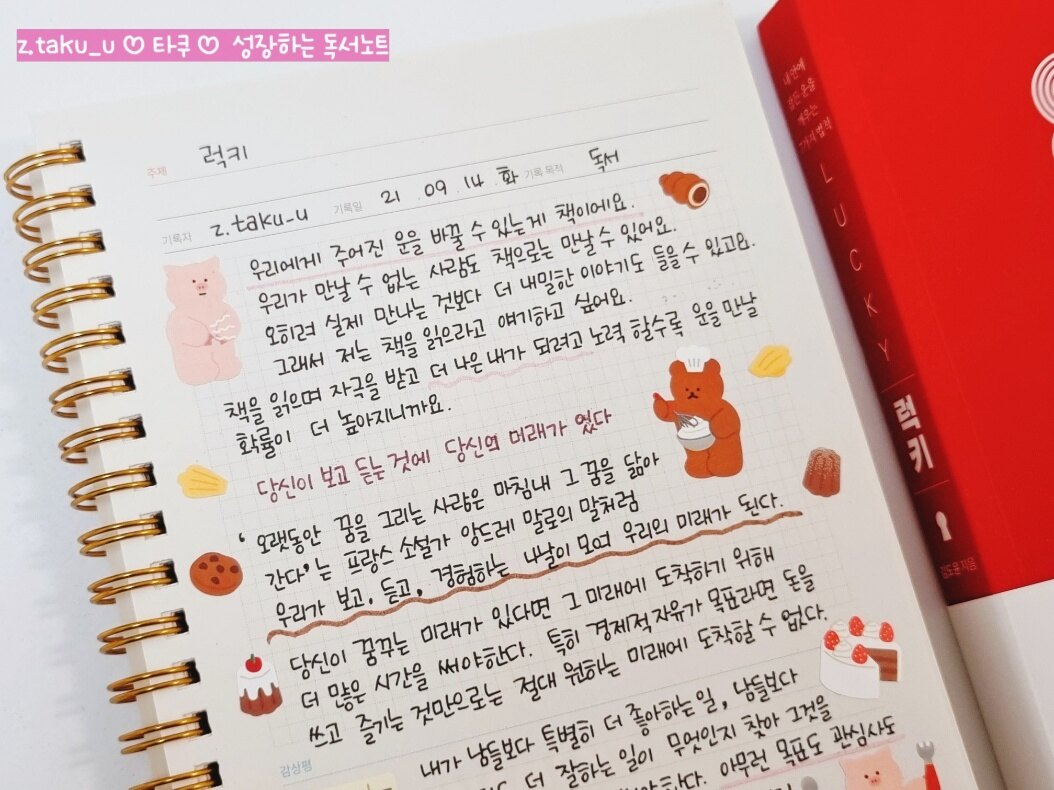 z.taku_u ♡ 타쿠 ♡ 성장하는 독서노트
주제 럭키
기록자 z.taku_u 기록일 21 . 09 . 14 . 화 기록 목적 독서
우리에게 주어진 운을 바꿀 수 있는게 책이에요.
우리가 만날 수 없는 사람도 책으로는 만날 수 있어요.
오히려 실제 만나는 것보다 더 내밀한 이야기도 들을 수 있고요.
그래서 저는 책을 읽으라고 얘기하고 싶어요.
책을 읽으며 자극을 받고 더 나은 내가 되려고 노력 할수록 운을 만날
확률이 더 높아지니까요.
당신이 보고 듣는 것에 당신의 미래가 있다
‘오랫동안 꿈을 그리는 사람은 마침내 그 꿈을 닮아
간다’는 프랑스 소설가 앙드레 말로의 말처럼
우리가 보고, 듣고, 경험하는 나날이 모여 우리의 미래가 된다.
당신이 꿈꾸는 미래가 있다면 그 미래에 도착하기 위해
더 많은 시간을 써야한다. 특히 경제적 자유가 목표라면 돈을
쓰고 즐기는 것만으로는 절대 원하는 미래에 도착할 수 없다.
감상평
내가 남들보다 특별히 더 좋아하는 일, 남들보다
더 잘하는 일이 무엇인지 찾아 그것을
야한다. 아무런 목표도 관심사도
내 안에
잠든 운을
깨우는
7가지 법칙
LUCKY
럭키
김도윤 지음